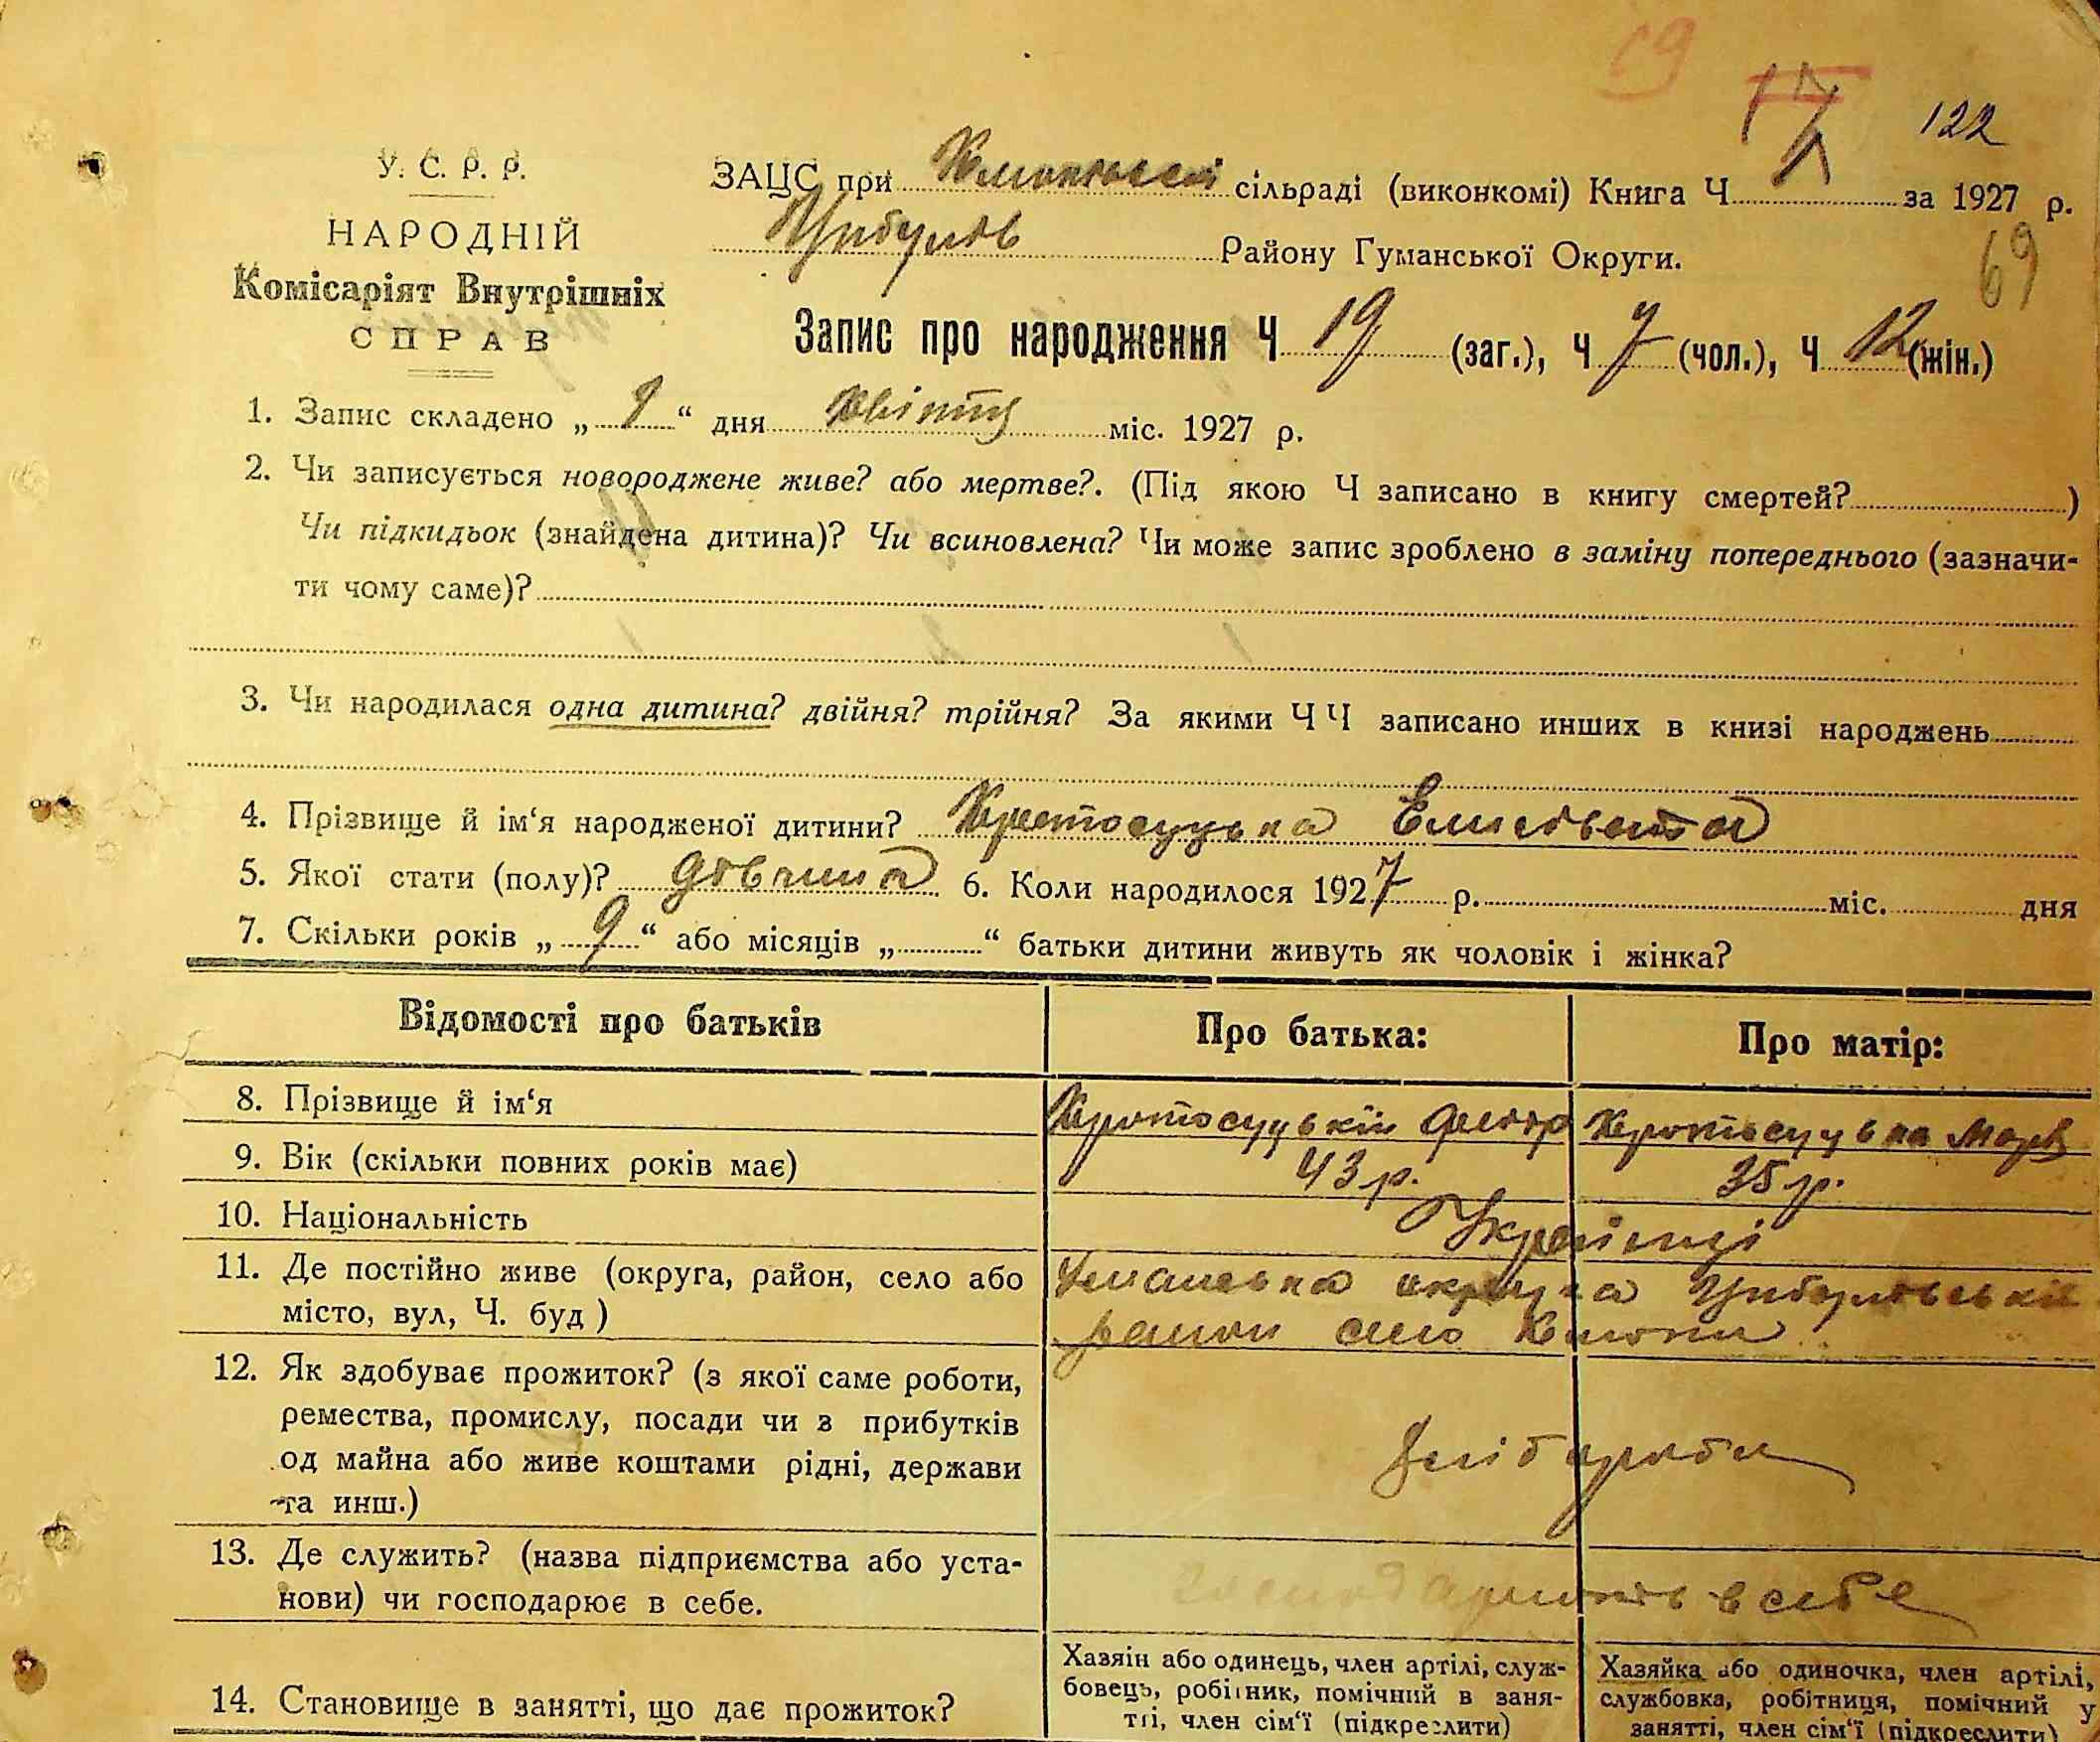 19
122
У. С. Р. Р.
НАРОДНІЙ
Комісаріят Внутрішніх
СПРАВ
ЗАЦС при сільраді (виконкомі) Книга Ч за 1927 р.
Цибулів Району Гуманської Округи.
69
Запис про народження Ч 19 (заг.), Ч 7 (чол.), Ч 12 (жін.)
1. Запис складено „ 9 “ дня квітня міс. 1927 р.
2. Чи записується новороджене живе? або мертве?. (Під якою Ч записано в книгу смертей? )
Чи підкидьок (знайдена дитина)? Чи всиновлена? Чи може запис зроблено в заміну попереднього (зазначи-
ти чому саме)?
3. Чи народилася одна дитина? двійня? трійня? За якими ЧЧ записано инших в книзі народжень
4. Прізвище й ім‘я народженої дитини? Кротосуцька Елисавета
5. Якої стати (полу)? дівчина 6. Коли народилося 1927 р. міс. дня
7. Скільки років „ 9 “ або місяців „ “ батьки дитини живуть як чоловік і жінка?
Відомості про батьків Про батька: Про матір:
8. Прізвище й ім‘я Кротосуцький Кротосуцька
9. Вік (скільки повних років має) 43 р. 35 р.
10. Національність Українці
11. Де постійно живе (округа, район, село або Уманська округа Цибулівський
місто, вул, Ч. буд ) район село Клюки
12. Як здобуває прожиток? (з якої саме роботи,
ремества, промислу, посади чи з прибутків
од майна або живе коштами рідні, держави Хліборобы
та инш.)
13. Де служить? (назва підприємства або уста-
нови) чи господарює в себе. господарюють в себе
14. Становище в занятті, що дає прожиток?
Хазяін або одинець, член артілі, служ-
бовець, робітник, помічний в заня-
тті, член сім‘ї (підкреслити)
Хазяйка або одиночка, член артілі,
службовка, робітниця, помічний у
занятті, член сім‘ї (підкреслити)